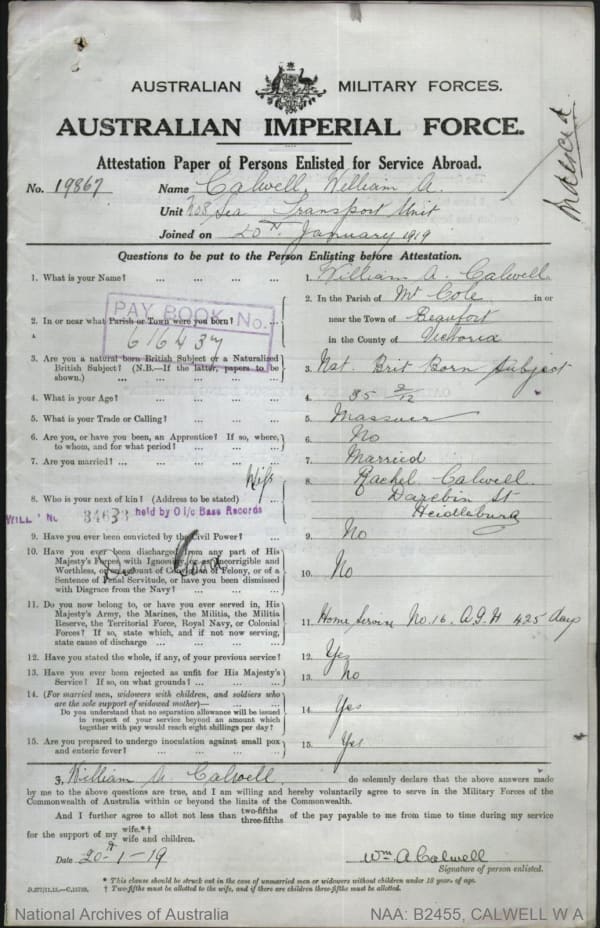 AUSTRALIAN MILITARY FORCES.
AUSTRALIAN IMPERIAL FORCE.
Attestation Paper of Persons Enlisted for Service Abroad.
Indexed
No. 19867 Name Calwell, William A.
Unit No 8, Sea Transport Unit
Joined on 20th January 1919
Questions to be put to the Person Enlisting before Attestation.
1. What is your Name? ... ... ... ... 1. William A. Calwell
2. In or near what Parish or Town were you born? ... 2. In the Parish of Mt Cole in or
near the Town of Beaufort
in the County of Victoria
PAY BOOK No.
616437
3. Are you a natural born British Subject or a Naturalized
British Subject? (N.B.—If the latter, papers to be
shown.) ... ... ... ... ... 3. Nat. Brit Born Subject
4. What is your Age? ... ... ... ... 4. 35 2/12
5. What is your Trade or Calling? ... ... ... 5. Masseur
6. Are you, or have you been, an Apprentice? If so, where,
to whom, and for what period? ... ... ... 6. No
7. Are you married? ... ... ... ... 7. Married
8. Who is your next of kin? (Address to be stated) ... Wife 8. Rachel Calwell
Darebin St
Heidleburg
WILL No 34633 held by O i/c Base Records
9. Have you ever been convicted by the Civil Power? ... 9. No
10. Have you ever been discharged from any part of His
Majesty's Forces, with Ignominy, or as Incorrigible and
Worthless, or on account of Conviction of Felony, or of a
Sentence of Penal Servitude, or have you been dismissed
with Disgrace from the Navy? ... ... ... 10. No
11. Do you now belong to, or have you ever served in, His
Majesty's Army, the Marines, the Militia, the Militia
Reserve, the Territorial Force, Royal Navy, or Colonial
Forces? If so, state which, and if not now serving,
state cause of discharge ... ... ... 11. Home Service No. 16. A.G.H 425 days
12. Have you stated the whole, if any, of your previous service? 12. Yes
13. Have you ever been rejected as unfit for His Majesty's
Service? If so, on what grounds? ... ... ... 13. No
14. (For married men, widowers with children, and soldiers who
are the sole support of widowed mother)—
Do you understand that no separation allowance will be issued
in respect of your service beyond an amount which
together with pay would reach eight shillings per day? ... 14. Yes
15. Are you prepared to undergo inoculation against small pox
and enteric fever? ... ... ... ... 15. Yes
I, William A. Calwell. do solemnly declare that the above answers made
by me to the above questions are true, and I am willing and hereby voluntarily agree to serve in the Military Forces of the
Commonwealth of Australia within or beyond the limits of the Commonwealth.
And I further agree to allot not less than two-fifths three-fifths of the pay payable to me from time to time during my service
for the support of my wife.*† wife and children.
Date 20-1-19 Wm A Calwell
Signature of person enlisted.
* This clause should be struck out in the case of unmarried men or widowers without children under 18 years of age.
† Two-fifths must be allotted to the wife, and if there are children three-fifths must be allotted.
National Archives of Australia NAA: B2455, CALWELL W A